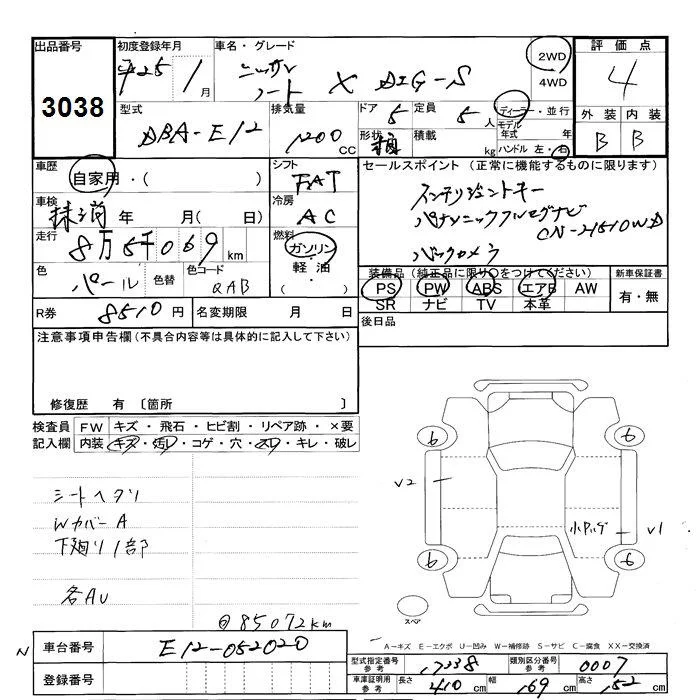 出品番号 初度登録年月 車名・グレード 2WD 評価点
3038 平25年 1月 ニッサン ノート X DIG-S 4WD 4
型式 排気量 ドア 定員 ディーラー・並行 外装 内装
DBA-E12 1200 CC 5 5人 モデル年式 年 B B
形状 積載 kg ハンドル 左・右
車歴 シフト セールスポイント (正常に機能するものに限ります)
自家用・( ) FAT インテリジェントキー
車検 冷房 パナソニックフルセグナビ
抹消 年 月( 日) AC CN-H510WD
走行 燃料 バックカメラ
8万5千069 km ガソリン・軽油・
色 色替 色コード 装備品 (純正品に限り○をつけてください) 新車保証書
パール QAB PS PW ABS エアB AW 有・無
SR ナビ TV 本革
R券 8510円 名変期限 月 日 後日品
注意事項申告欄 (不具合内容等は具体的に記入して下さい)
修復歴 有 〔箇所 〕
検査員 FW キズ・飛石・ヒビ割・リペア跡・×要
記入欄 内装 キズ・汚れ・コゲ・穴・スレ・キレ・破レ
6 6
V2
シートヘタリ
WカバーA
下廻り1部
V1
6 6
各AU
@85072km
スペア
A-キズ E-エクボ U-凹み W-補修跡 S-サビ C-腐食 XX-交換済
N 車台番号 E12-052020
型式指定番号 参考 17238 類別区分番号 参考 0007
登録番号 車庫証明用 参考 長さ 410 cm 幅 169 cm 高さ 152 cm